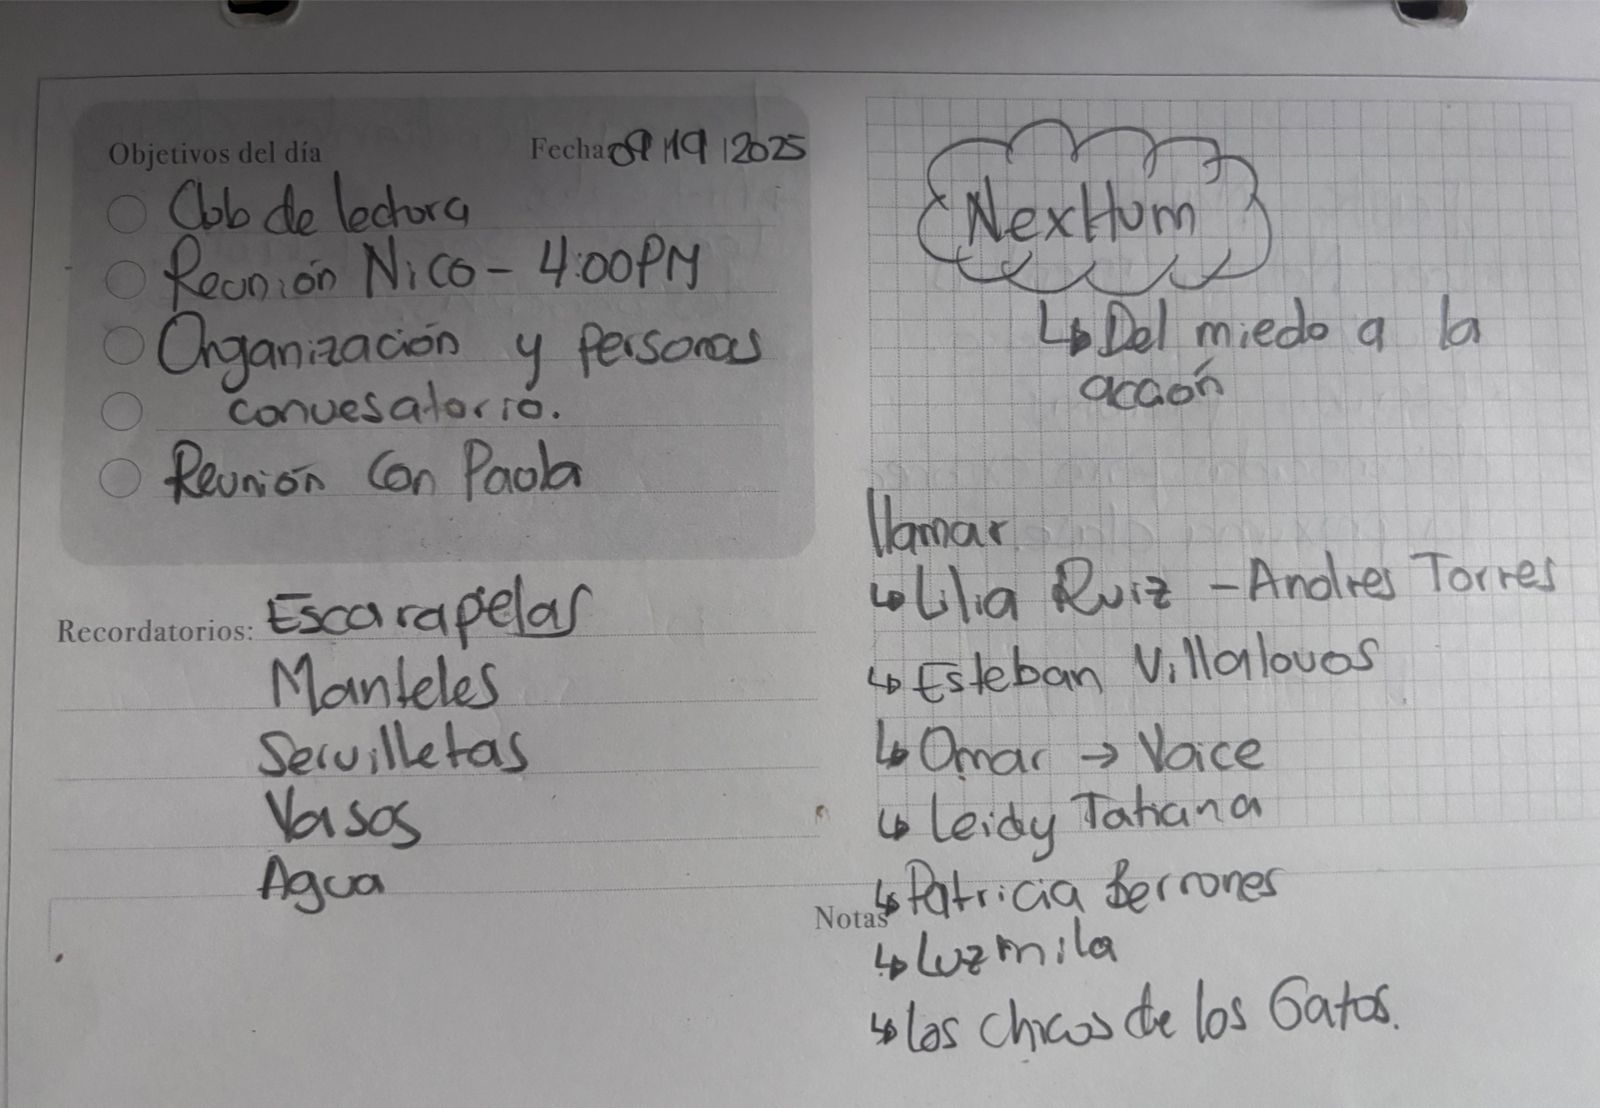 Objetivos del día Fecha 09/19/2025
Club de lectura
Reunión Nico - 4:00PM
Organización y personas
conversatorio.
Reunión con Paola
Recordatorios: Escarapelas
Manteles
Servilletas
Vasos
Agua
NexHum
↳ Del miedo a la
acción
llamar
↳ Lilia Ruiz - Andres Torres
↳ Esteban Villalovos
↳ Omar → Voice
↳ Leidy Tatiana
↳ Patricia Berrones
Notas
↳ Luzmila
↳ los chicos de los Gatos.